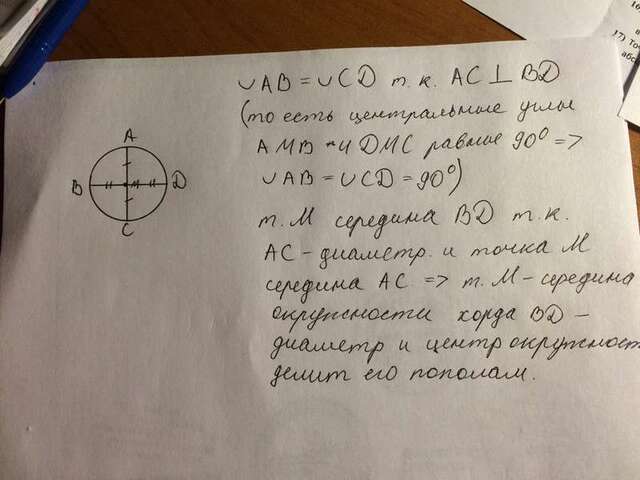 ∪AB = ∪CD т.к. AC⊥BD
(то есть центральные углы
AMB и DMC равные 90° =>
∪AB = ∪CD = 90°)
т.М середина BD т.к.
AC - диаметр. и точка М
середина AC => т.М - середина
окружности хорда BD -
диаметр и центр окружност
делит его пополам.
A
B
M
D
C
16
17) То
абс